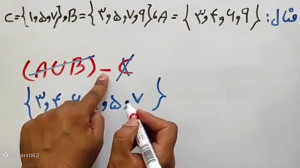 مثال: A = {۳,۴,۶,۹} , B = {۳,۵,۷,۹} , C = {۱,۵,۷}
(A∪B) - C
{۳,۴,۶,۹,۵,۷